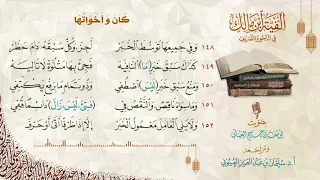 كان وأخواتها
ألفية ابن مالك
في النحو والتصريف
١٤٨ وفي جميعها توسط الخبر أجز، وكل سبقه دام حظر
١٤٩ كذاك سبق خبر (ما) النافيه فجئ بها متلوة لا تاليه
١٥٠ ومنع سبق خبر (ليس) اصطفي وذو تمام ما برفع يكتفي
١٥١ وما سواه ناقص والنقص في (فتئ، ليس، زال) دائما قفي
١٥٢ ولا يلي العامل معمول الخبر إلا إذا ظرفا أتى أو حرف جر
بصوت
ومراجعة
أ.د. سليمان بن عبد العزيز العيوني